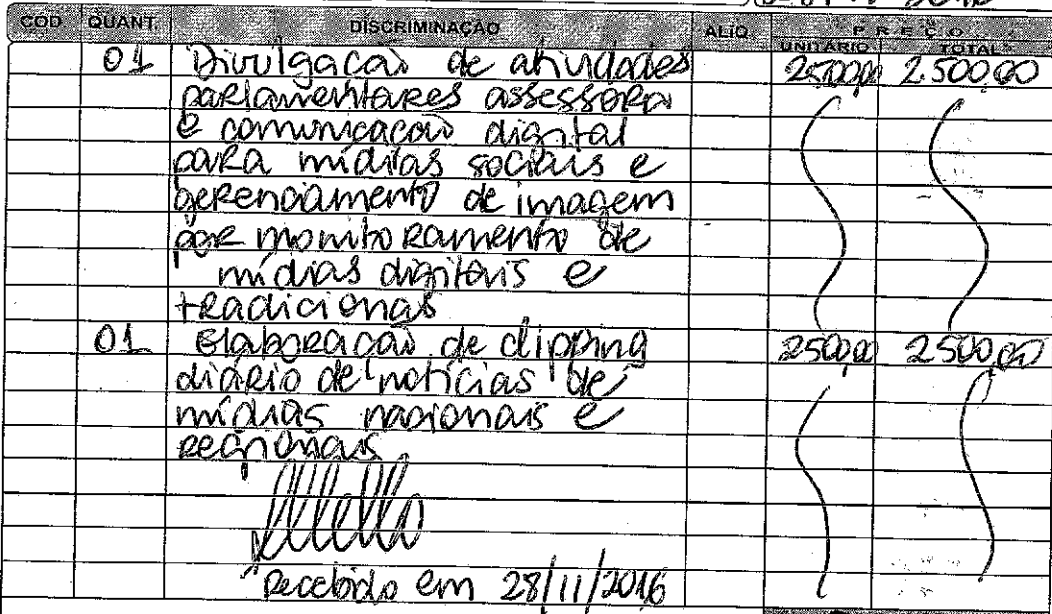 COD. QUANT. DISCRIMINAÇÃO ALIQ. PREÇO
UNITÁRIO TOTAL
01 Divulgacão de atividades 2500,00 2.500,00
parlamentares assessora
e comunicacão digital
para mídias sociais e
gerenciamento de imagem
por monitoramento de
mídias digitais e
tradicionas
01 Elaboracão de clipping 2500,00 2500,00
diário de notícias de
mídias nacionais e
regionais
Recebido em 28/11/2016